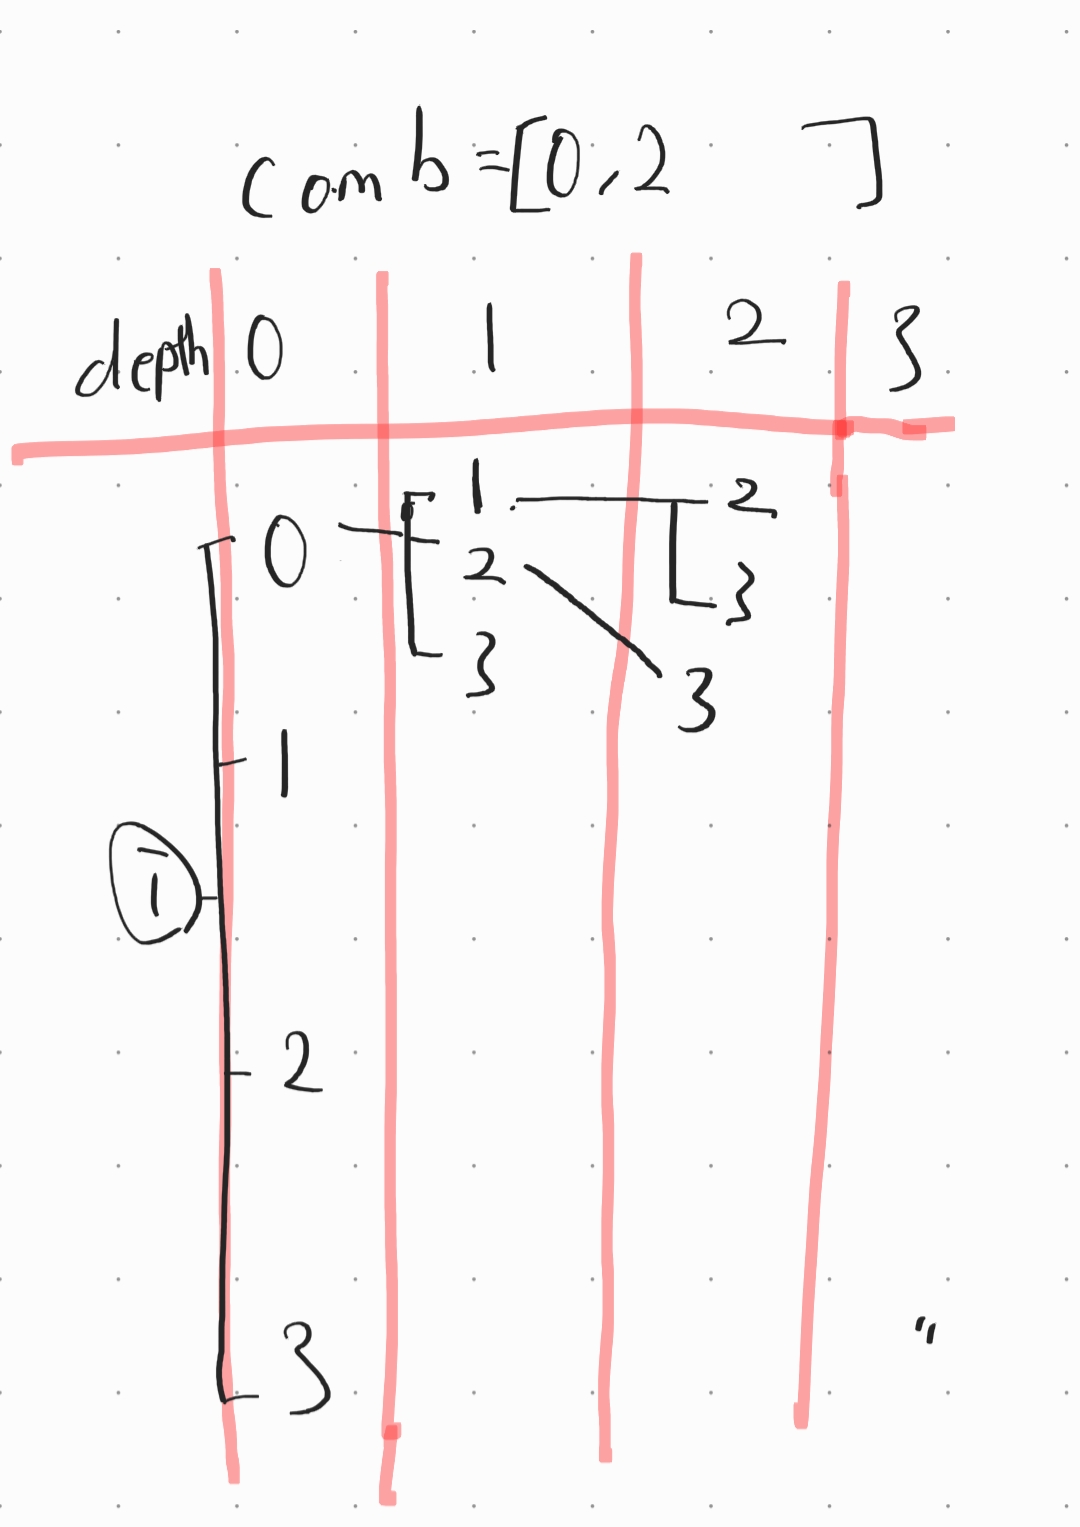 comb=[0,2 ]
depth 0 1 2 3
0 1 2
2 3
3 3
1
1
2
3
"